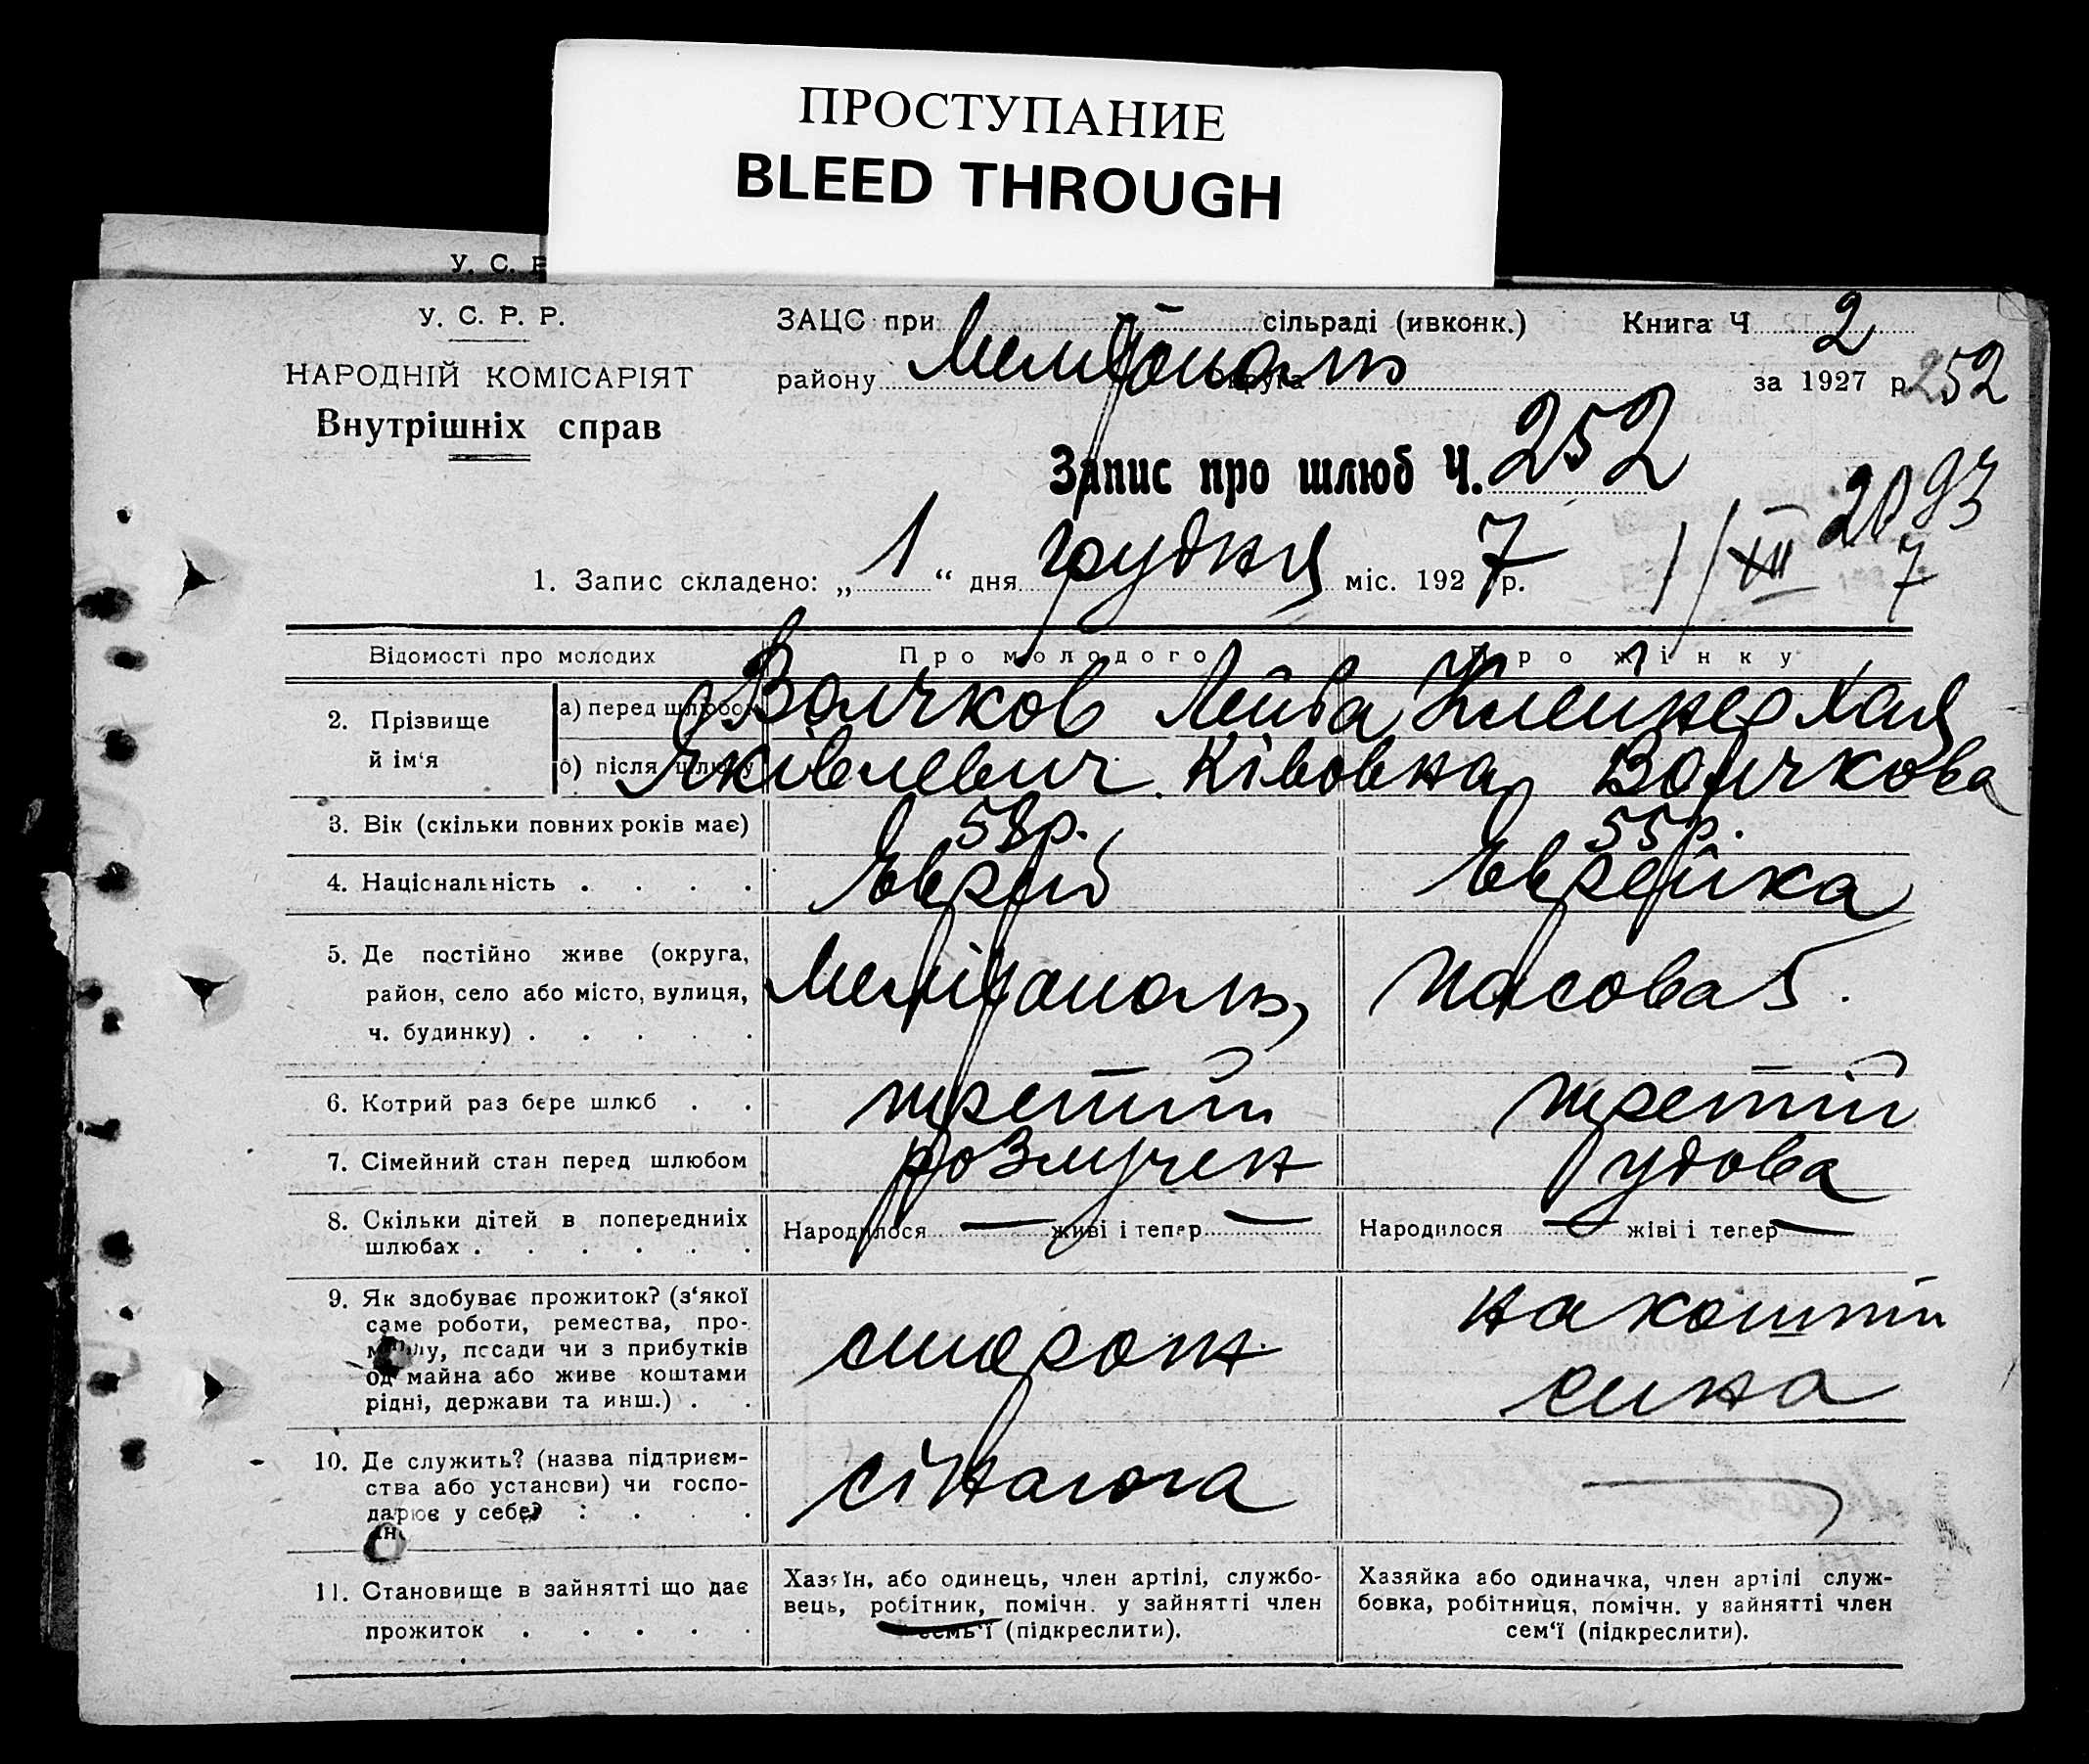 ПРОСТУПАНИЕ
BLEED THROUGH
У. С. Р
У. С. Р. Р.
НАРОДНІЙ КОМІСАРІЯТ
Внутрішніх справ
ЗАЦС при сільраді (ивконк.) Книга Ч 2
району Мелітополь округа за 1927 р. 252
Запис про шлюб Ч. 252
2093
1. Запис складено: „ 1 “ дня грудня міс. 1927 р. 1/XII 7
Відомості про молодих Про молодого Про жінку
2. Прізвище й ім‘я
а) перед шлюбом Волчков Лейба Клейнер Хая
б) після шлюбу Яківлевич Ківовна Волчкова
3. Вік (скільки повних років має) 58 р. 55 р.
4. Національність . . . . Єврей Єврейка
5. Де постійно живе (округа,
район, село або місто, вулиця,
ч. будинку) . . . . .
Мелітополь, 5.
6. Котрий раз бере шлюб . . третий третій
7. Сімейний стан перед шлюбом розлучен удова
8. Скільки дітей в попередніх
шлюбах . . . . . .
Народилося — живі і тепер — Народилося — жіві і тепер —
9. Як здобуває прожиток? (з‘якої
саме роботи, ремества, про-
мислу, посади чи з прибутків
од майна або живе коштами
рідні, держави та инш.) . .
сторож
на кошти
сина
10. Де служить? (назва підприєм-
ства або установи) чи госпо-
дарює у себе? : . . .
сінагога —
11. Становище в зайнятті що дає
прожиток . . . . .
Хазяїн, або одинець, член артілі, службо-
вець, робітник, помічн. у зайнятті член
семь‘ї (підкреслити).
Хазяйка або одиначка, член артілі служ-
бовка, робітниця, помічн. у зайнятті член
сем‘ї (підкреслити).